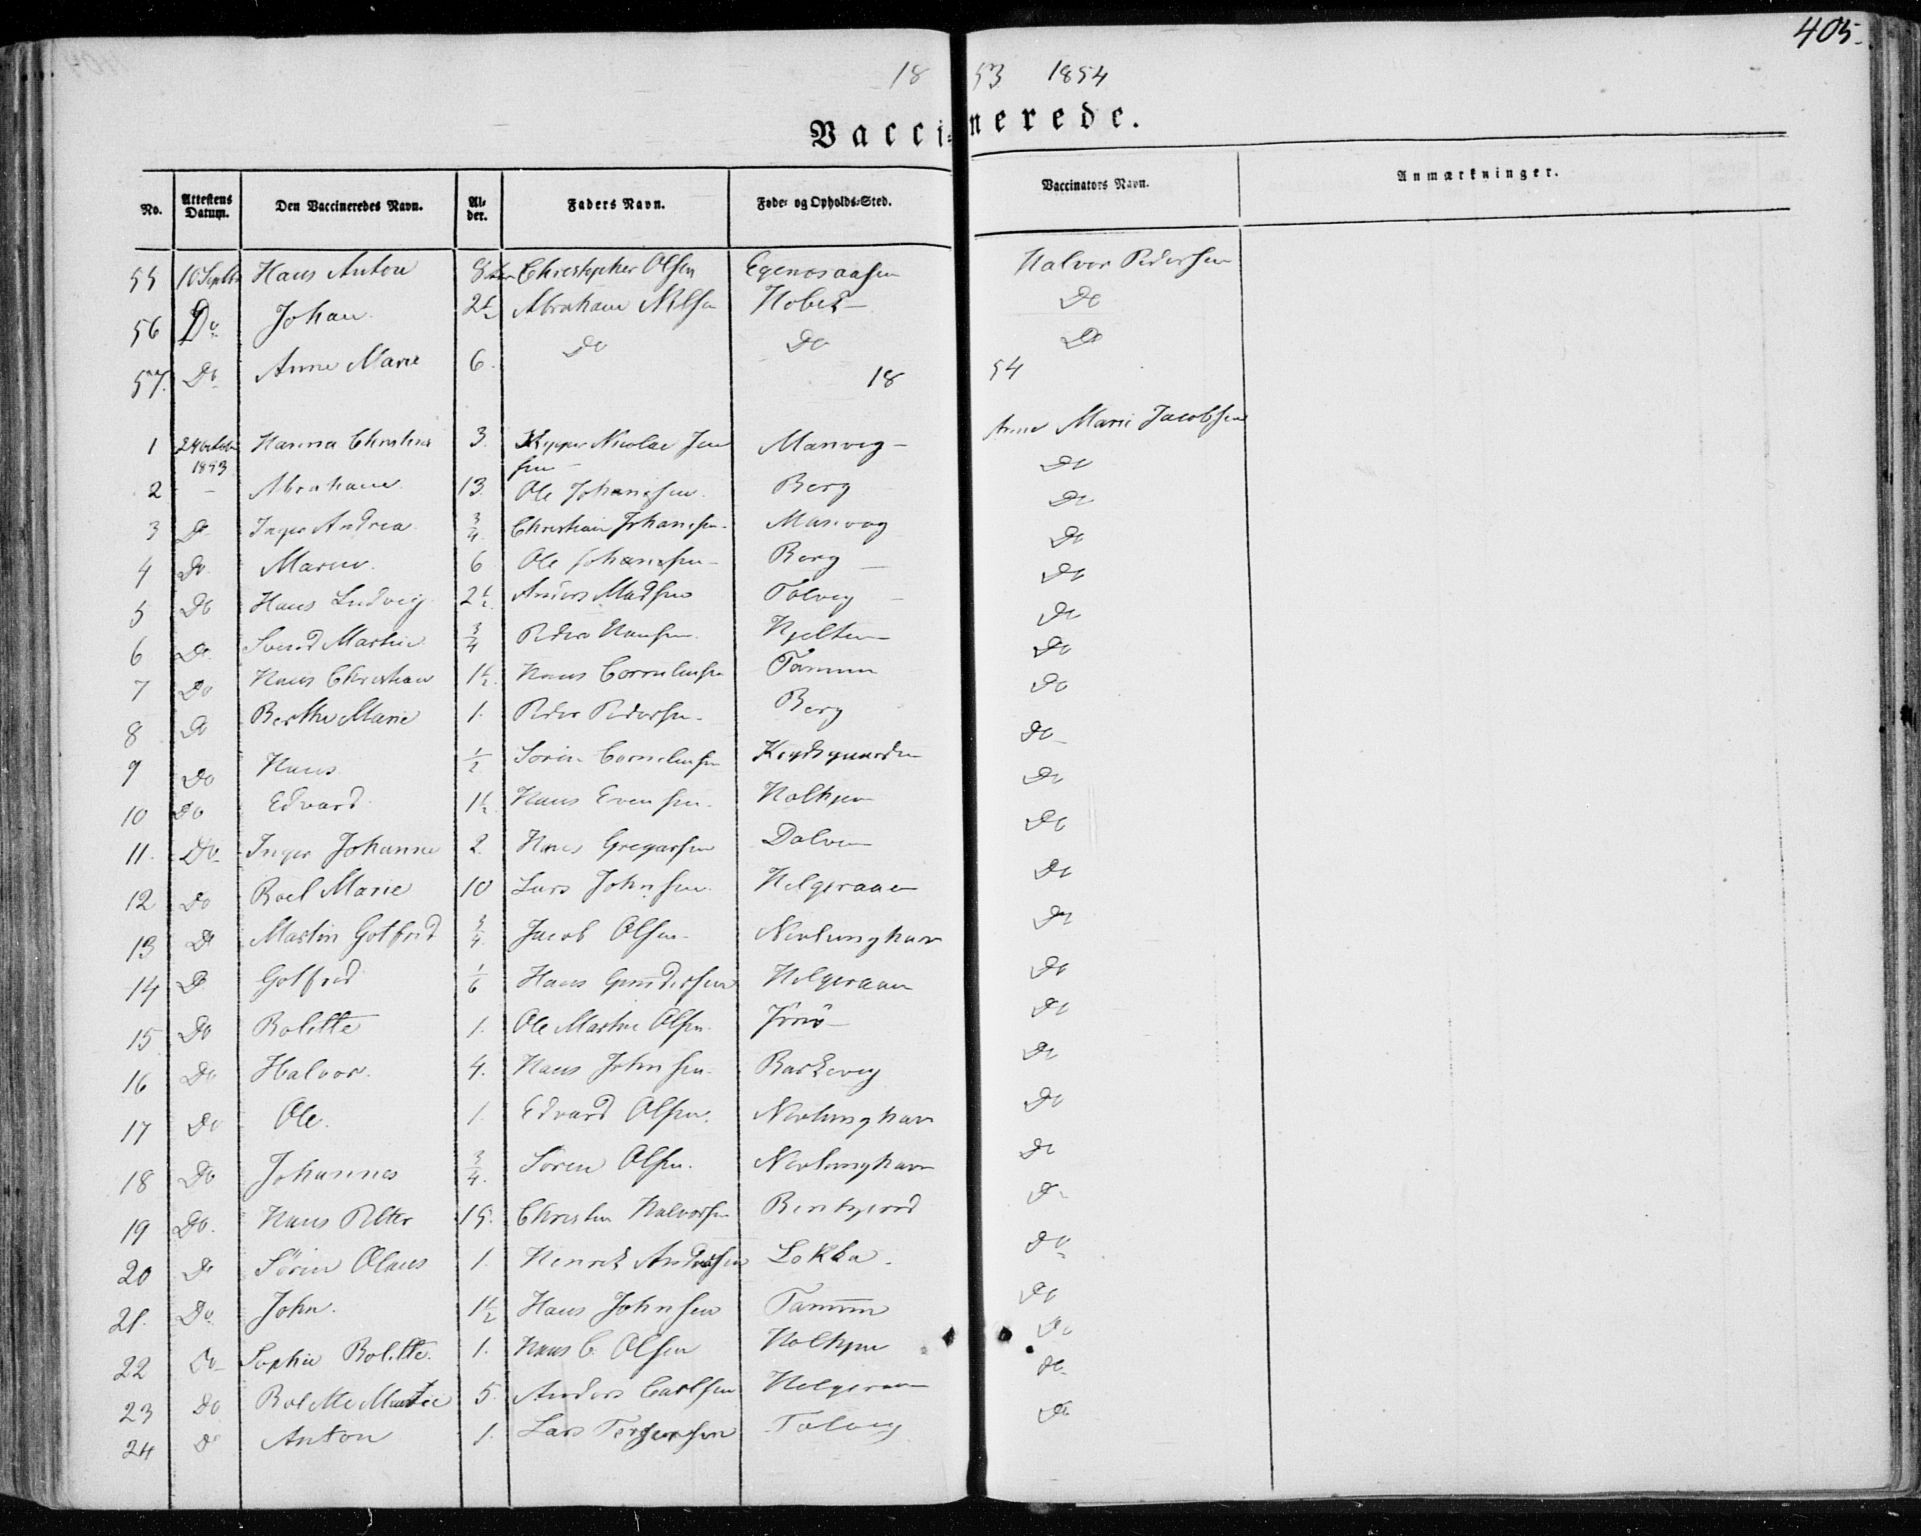 405.
1853 1854
Vaccinerede.
No. Attestens Datum. Den Vaccineredes Navn. Alder. Faders Navn. Føde- og Opholds-Sted. Vaccinators Navn. Anmærkninger.
55 10 Septbr Hans Anton Christopher Olsen Egenesaasen Halvor Pedersen
56 Do Johan 2½ Abraham Nilsen Do
57. Do Anne Marie 6. Do Do Do
1854
1 24 October 1853 Hanna Christine 3. Nicolai Jensen Manvig Anne Marie Jacobsen
2 - Abraham 13. Ole Johansen Berg Do
3 Do Inger Andrea ¾ Christian Johansen Manvig Do
4 Do Maren 6 Ole Johansen Berg Do
5 Do Hans Ludvig 2½ Anders Madsen Tolvig Do
6 Do Svend Martin ¾ Peder Hansen Hjelten Do
7 Do Hans Christian 1½ Hans Corneliusen Tanum Do
8 Do Berthe Marie 1. Peder Pedersen Berg Do
9 Do Hans ½ Sören Corneliusen Do
10 Do Edvard 1½ Hans Evensen Holtyen Do
11. Do Inger Johanne 2. Hans Gregarsen Dalven Do
12 Do Boel Marie 10 Lars Johnsen Helgeraaen Do
13 Do Martin Gotfred ¾ Jacob Olsen Nevlunghavn Do
14 Do Gotfred 1/6 Hans Gundersen Helgeraaen Do
15 Do Bolette 1. Ole Martin Olsen Do
16 Do Halvor. 4. Hans Johnsen Barkevig Do
17 Do Ole. 1. Edvard Olsen. Nevlunghavn Do
18 Do Johannes ¾ Sören Olsen. Nevlunghavn Do
19 Do. Hans Petter 15. Christen Halvorsen Do
20 Do Sören Olaus 1. Henrik Andersen Lokka. Do
21. Do John. 1½ Hans Johnsen Tanum Do
22 Do Sophie Bolette. 1. Hans C. Olsen Holtyen Do
23 Do Bolette 5. Anders Carlsen Helgeraaen Do
24 Do Anton 1. Lars Torgersen Tolvig Do